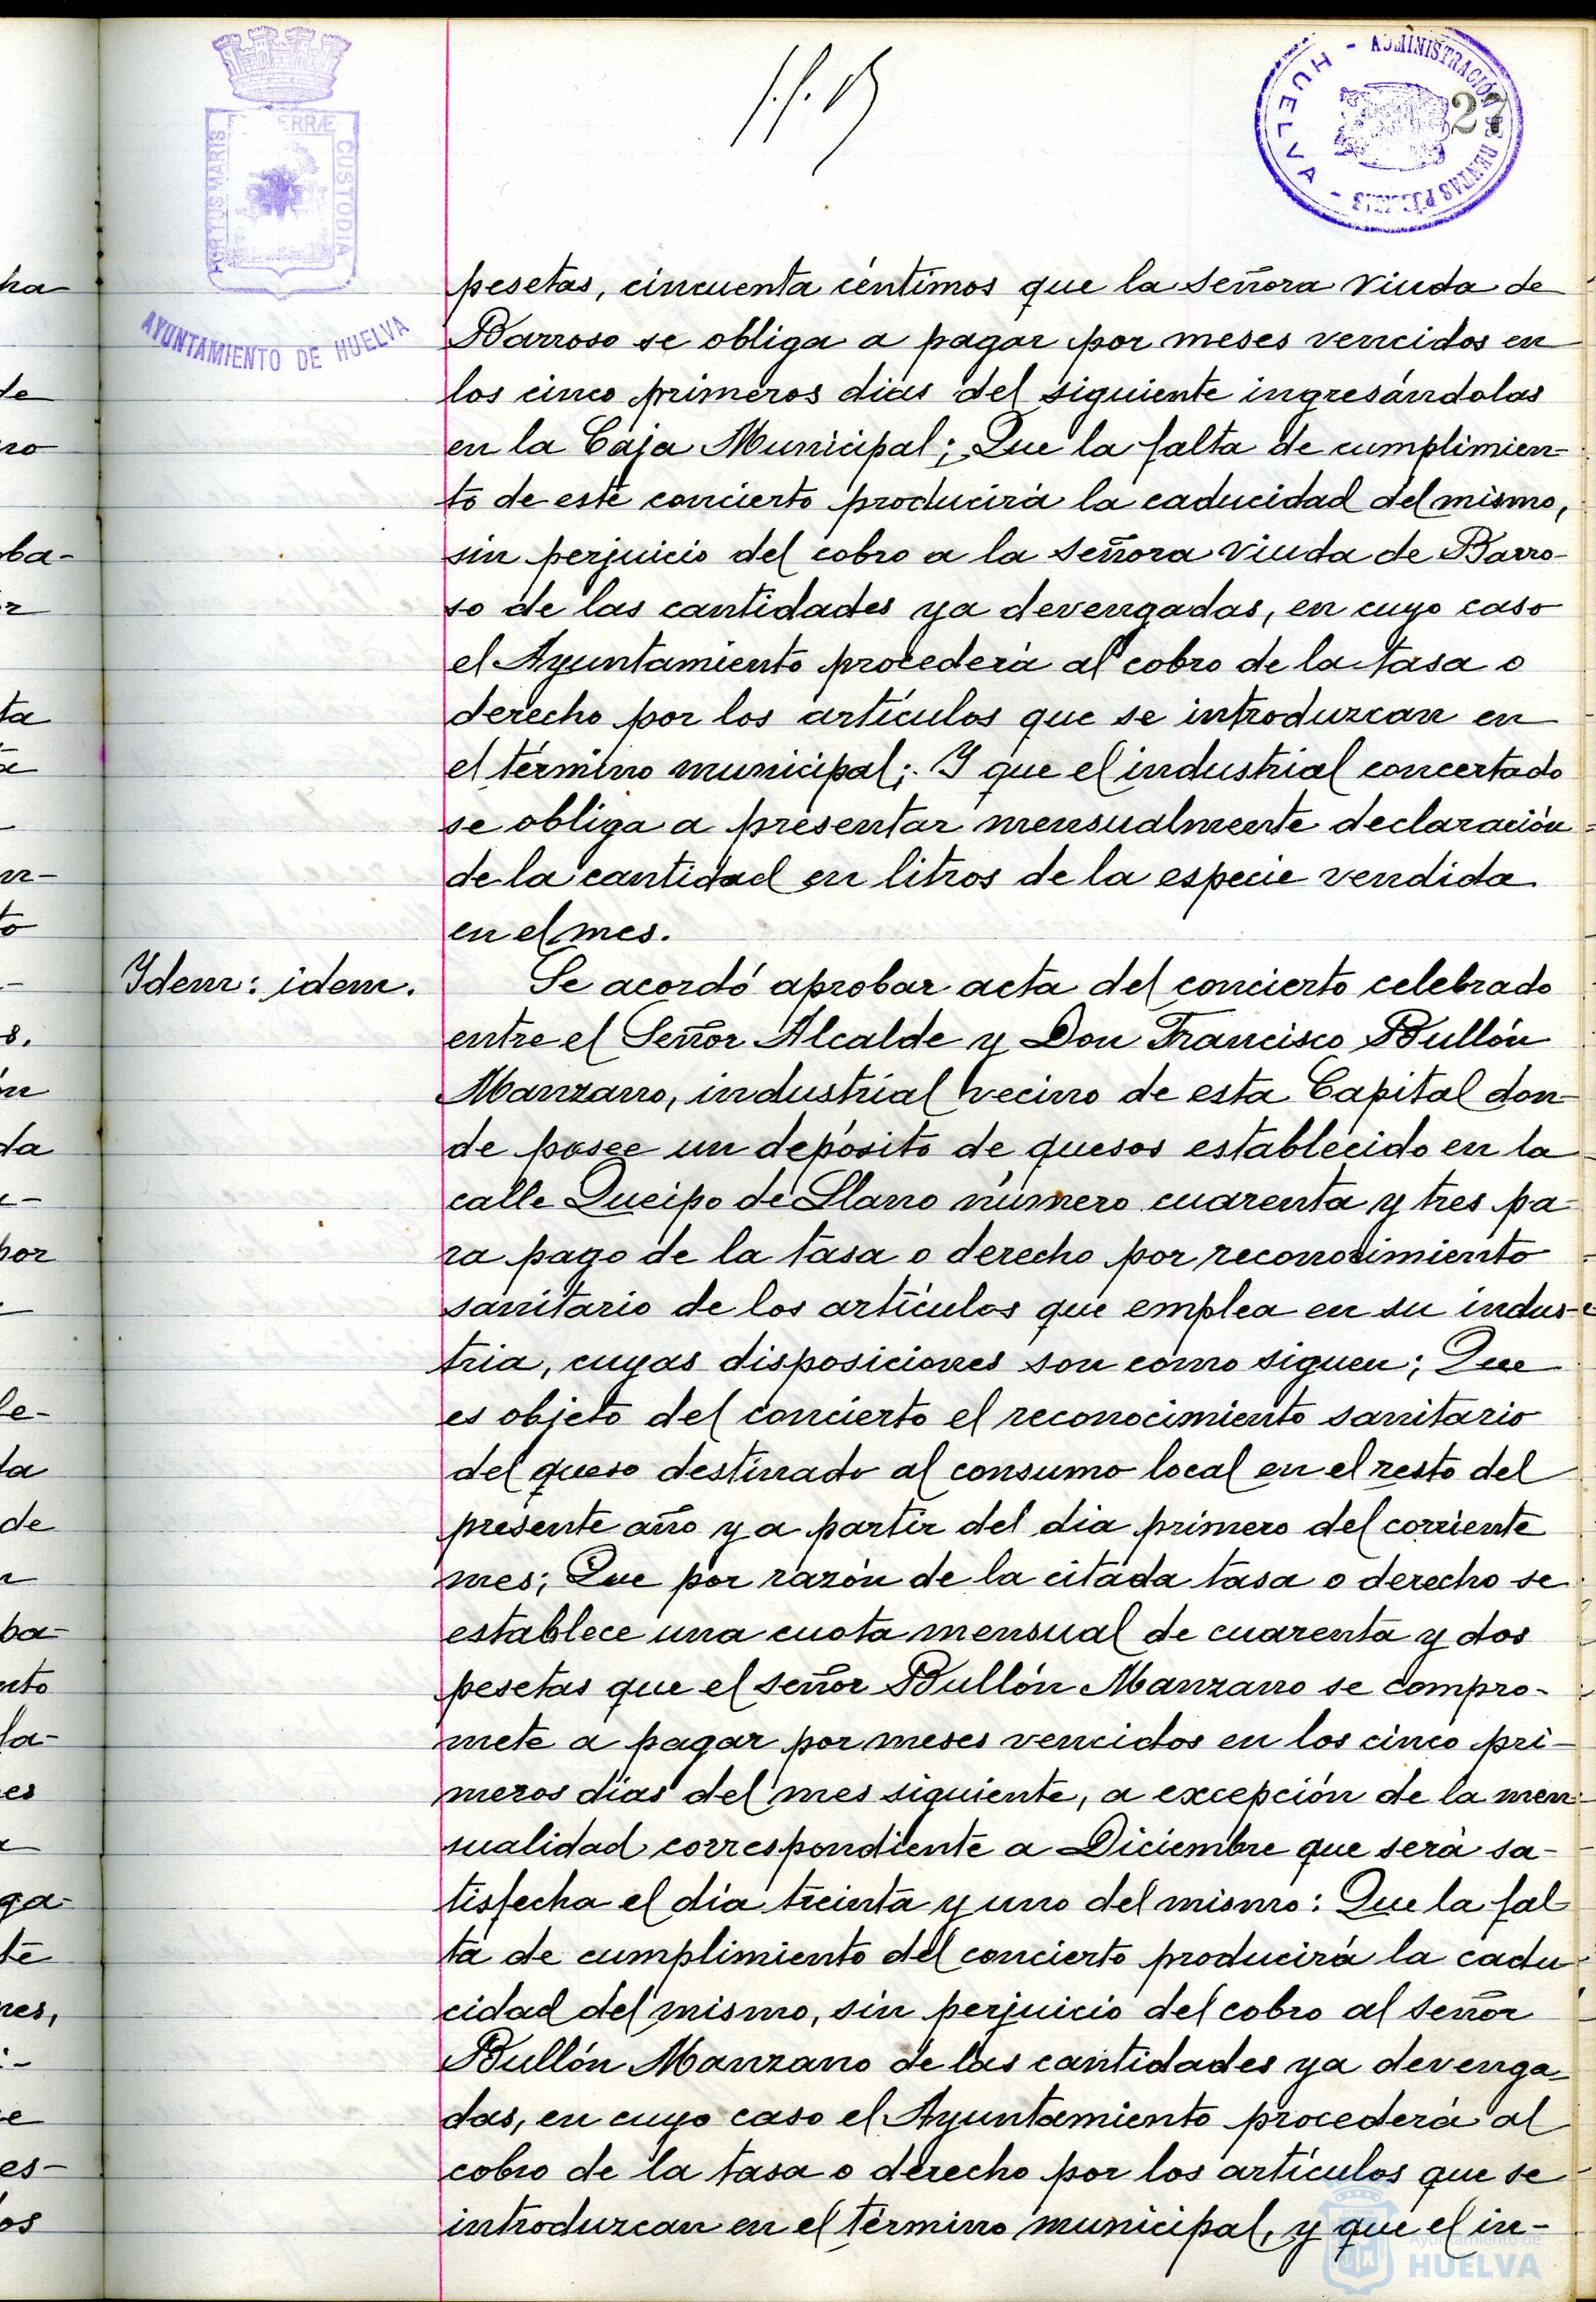 PORTUS MARIS
ERRÆ
CUSTODIA
AYUNTAMIENTO DE HUELVA
ADMINISTRACIÓN DE RENTAS PÚBLICAS - HUELVA -
27
pesetas, cincuenta céntimos que la señora Viuda de
Barroso se obliga a pagar por meses vencidos en
los cinco primeros dias del siguiente ingresándolas
en la Caja Municipal; Que la falta de cumplimien-
to de este concierto producirá la caducidad del mismo,
sin perjuicio del cobro a la señora Viuda de Barro-
so de las cantidades ya devengadas, en cuyo caso
el Ayuntamiento procederá al cobro de la tasa o
derecho por los artículos que se introduzcan en
el término municipal; Y que el industrial concertado
se obliga a presentar mensualmente declaración
de la cantidad en litros de la especie vendida
en el mes.
Idem: idem.
Se acordó aprobar acta del concierto celebrado
entre el Señor Alcalde y Don Francisco Bullón
Manzano, industrial vecino de esta Capital don-
de posee un depósito de quesos establecido en la
calle Queipo de Llano número cuarenta y tres pa-
ra pago de la tasa o derecho por reconocimiento
sanitario de los artículos que emplea en su indus-
tria, cuyas disposiciones son como siguen; Que
es objeto del concierto el reconocimiento sanitario
del queso destinado al consumo local en el resto del
presente año y a partir del dia primero del corriente
mes; Que por razón de la citada tasa o derecho se
establece una cuota mensual de cuarenta y dos
pesetas que el señor Bullón Manzano se compro-
mete a pagar por meses vencidos en los cinco pri-
meros dias del mes siguiente, a excepción de la men-
sualidad correspondiente a Diciembre que será sa-
tisfecha el día treinta y uno del mismo: Que la fal
ta de cumplimiento del concierto producirá la cadu
cidad del mismo, sin perjuicio del cobro al señor
Bullón Manzano de las cantidades ya devenga-
das, en cuyo caso el Ayuntamiento procederá al
cobro de la tasa o derecho por los artículos que se
introduzcan en el término municipal, y que el in-
Ayuntamiento de
HUELVA